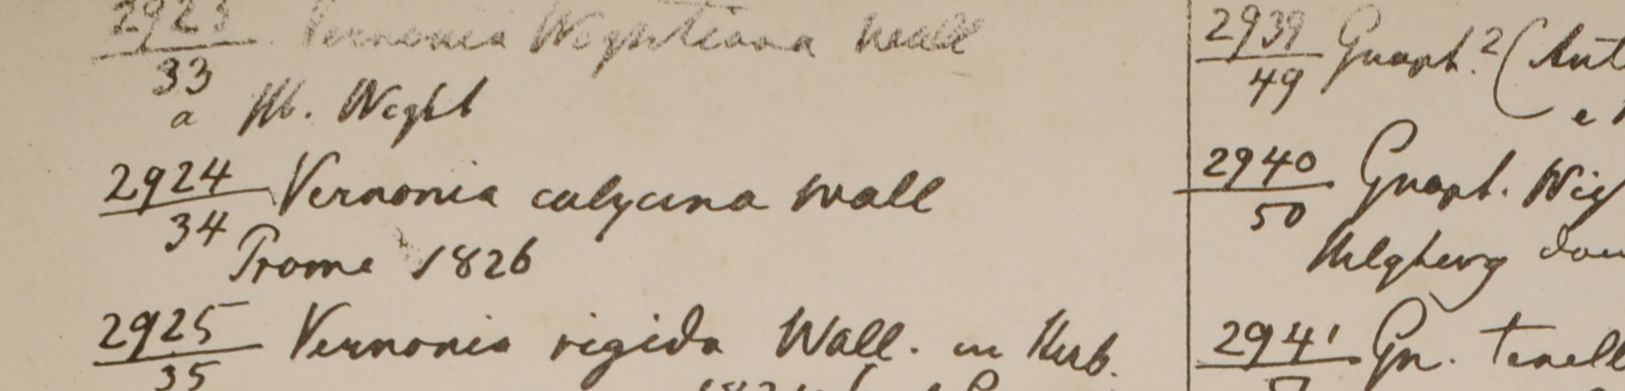 2923 Vernonia Wightiana Wall
33
a Hb. Wight
2924 Vernonia calycina Wall
34
Prome 1826
2925 Vernonia rigida Wall. in Herb.
35
2939 Gnaph.? (Ant
49
2940 Gnaph. Wig
50
Nilgherry
2941 Gn. tenell